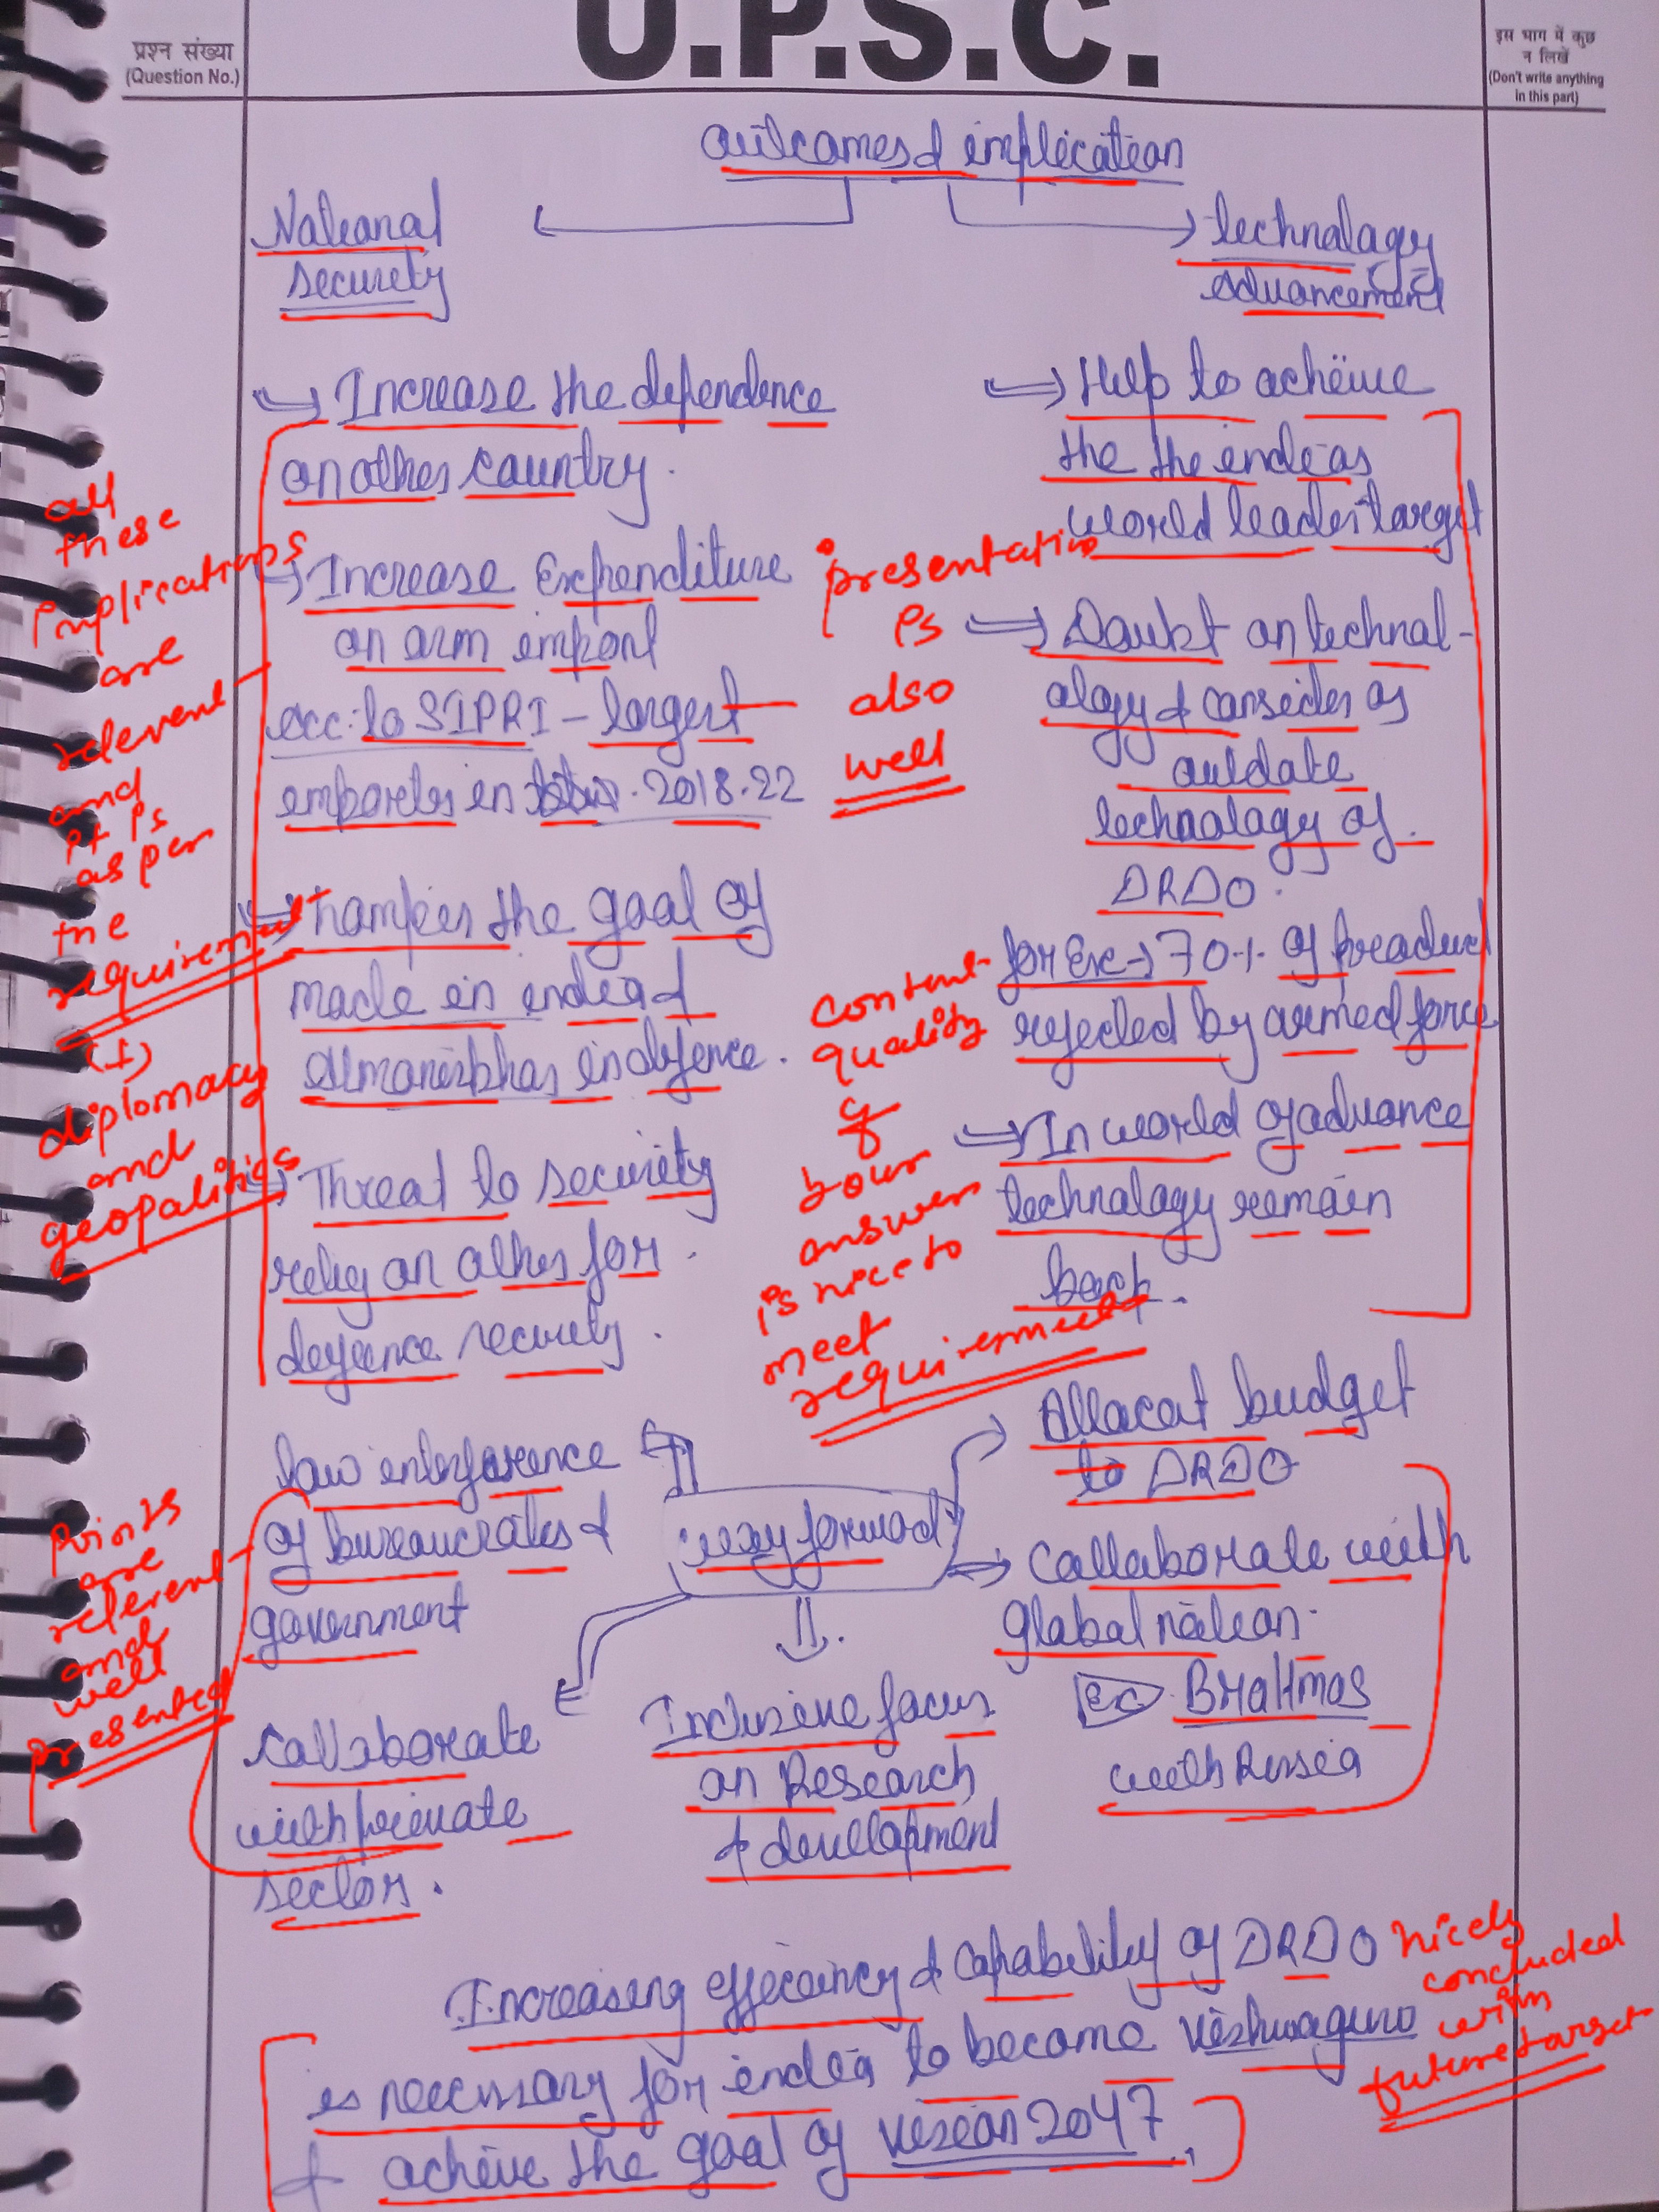 U.P.S.C.
प्रश्न संख्या
(Question No.)
इस भाग में कुछ
न लिखें
(Don't write anything
in this part)
outcomes & implication
National
security
technology
advancement
→ Increase the dependence
on other country.
→ Increase Expenditure
on arm import
acc. to SIPRI - largest
importer in 2018-22
→ hampers the goal of
made in india &
Atmanirbhar in defence.
→ Threat to security
reliy on other for
defence security.
→ Help to acheive
the the india as
world leader target
→ Doubt on technol-
ology & consider as
outdate
technology of
DRDO.
for Ex → 70% of product
rejected by armed force
→ In world of advance
technology remain
back.
all
these
implications
are
relevent
and
it is
as per
the
requirement
(+)
diplomacy
and
geopolitics
presentation
is
also
well
content
quality
of
your
answer
is nice to
meet
requirement
way forward
low interforence
of bureaucrates &
government
Allocat budget
to DRDO
→ Collaborate with
global nation.
Ex. BraHmos
with Russia
Collaborate
with private
sector.
Inclusive focus
on Research
& development
points
are
relevent
and
well
presented
Increasing efficiency & capability of DRDO
is necessary for india to become vishwaguru
& achive the goal of vision 2047.
nicely
concluded
with
future target